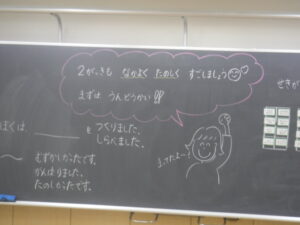 2がっきも なかよく たのしく すごしましょう
まずは うんどうかい!!
せきが
ぼくは、
を つくりました。
しらべました。
まってたよー!
むずかしかったです。
がんばりました。
たのしかったです。